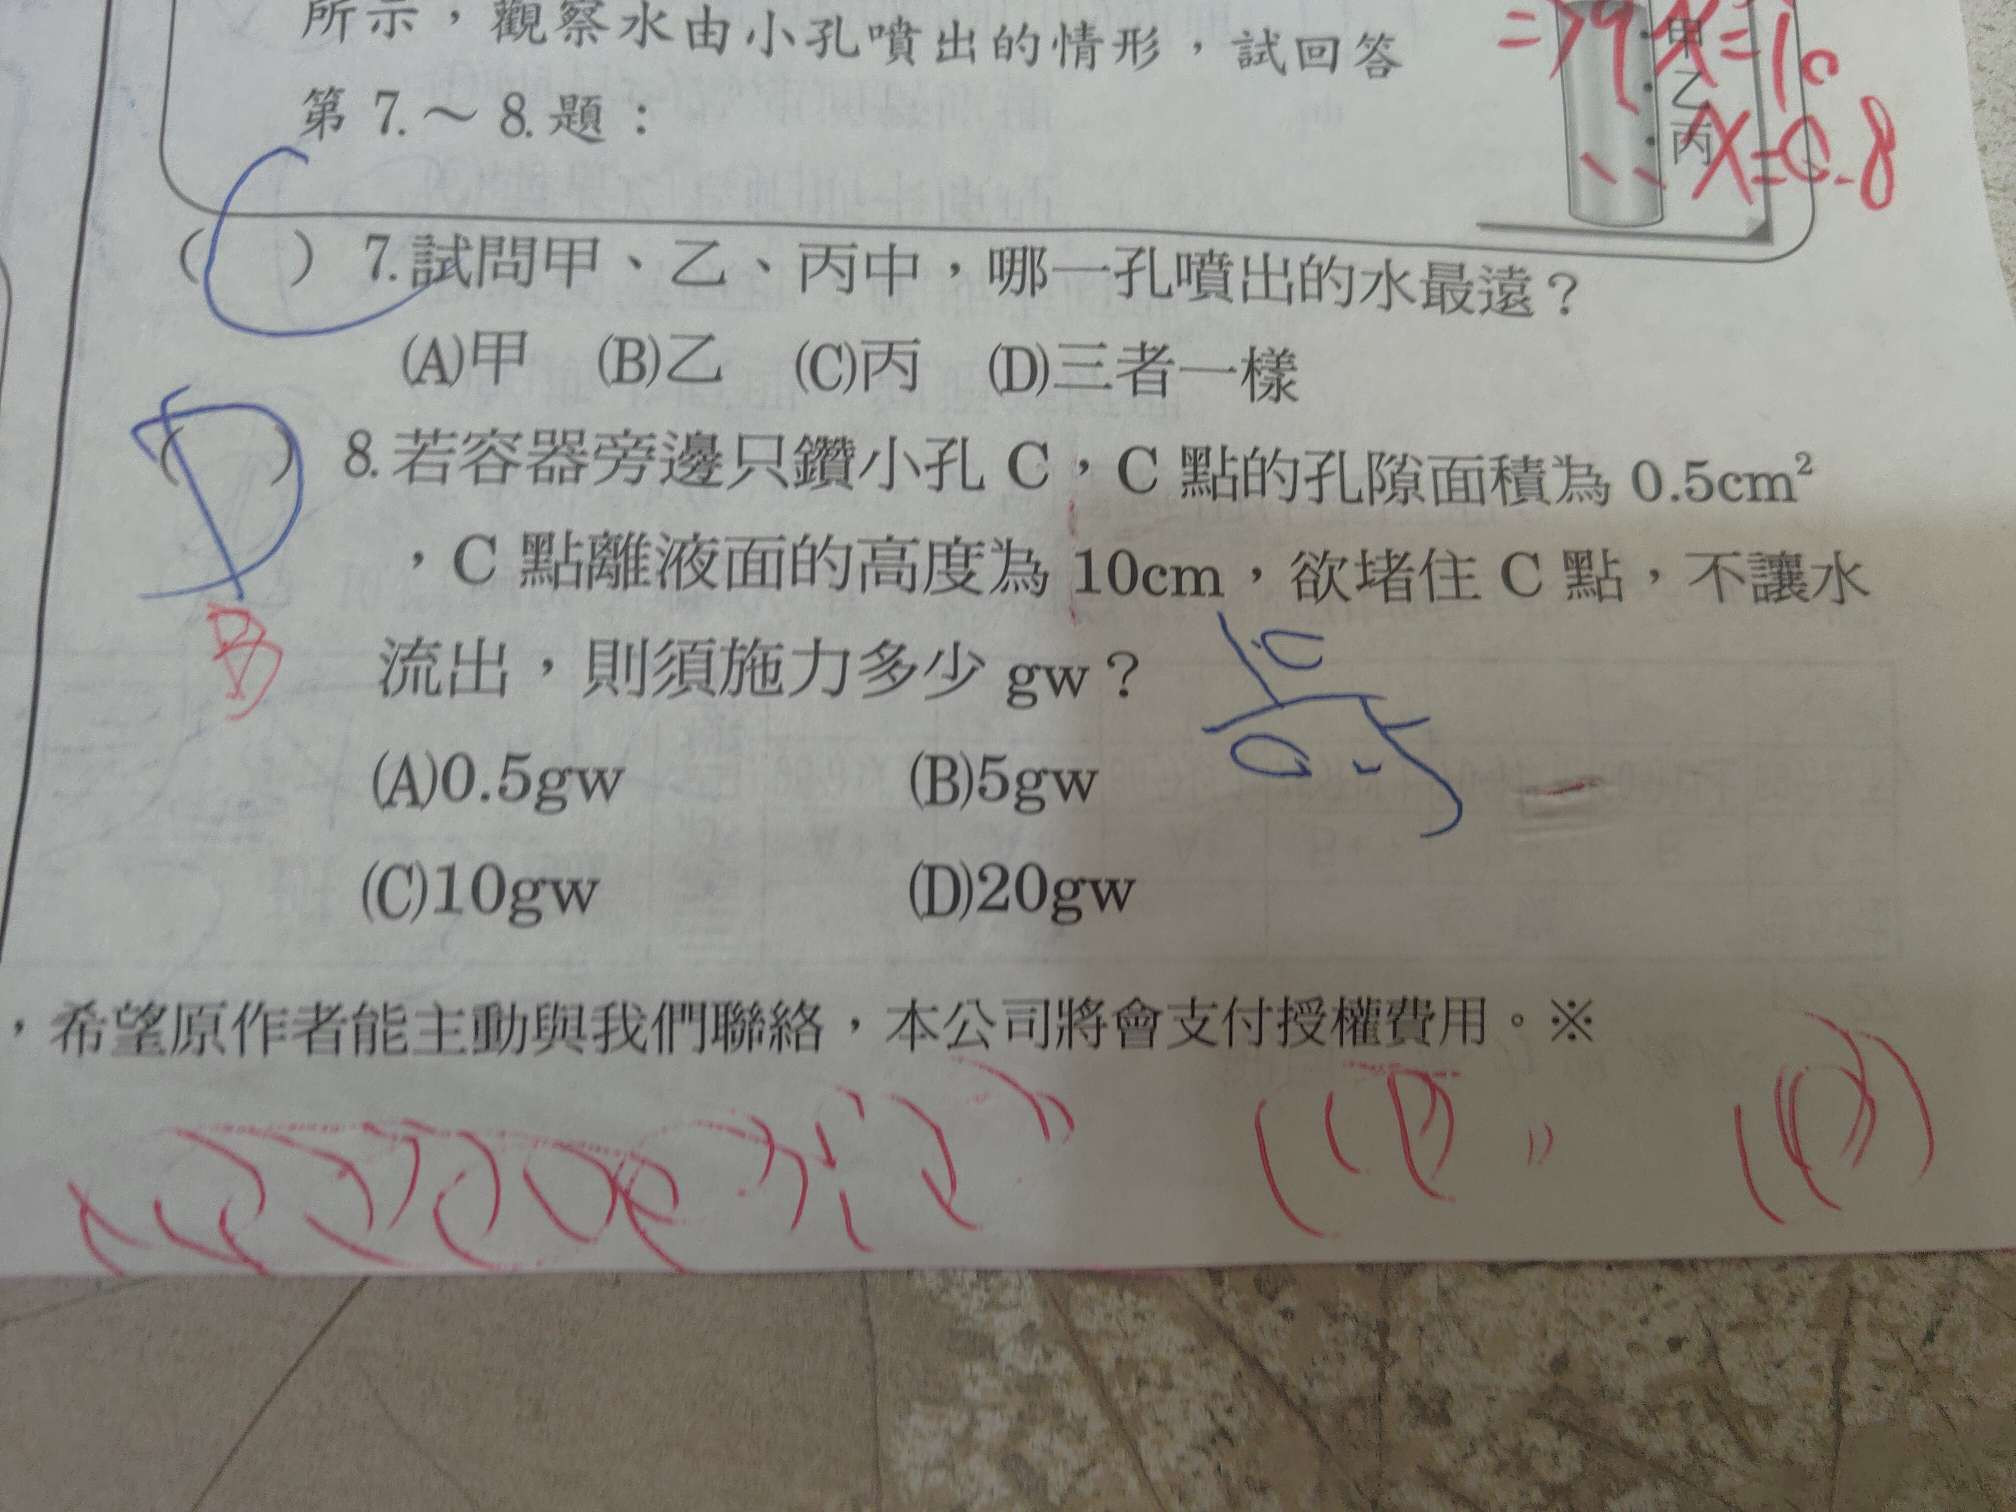 所示，觀察水由小孔噴出的情形，試回答
第 7.～ 8. 題：
甲
乙
丙
=79 X=10
X=0.8
C
( ) 7. 試問甲、乙、丙中，哪一孔噴出的水最遠？
(A)甲 (B)乙 (C)丙 (D)三者一樣
D
( ) 8. 若容器旁邊只鑽小孔 C，C 點的孔隙面積為 0.5cm²
，C 點離液面的高度為 10cm，欲堵住 C 點，不讓水
B
流出，則須施力多少 gw？
10
0.5
(A)0.5gw (B)5gw
(C)10gw (D)20gw
，希望原作者能主動與我們聯絡，本公司將會支付授權費用。※